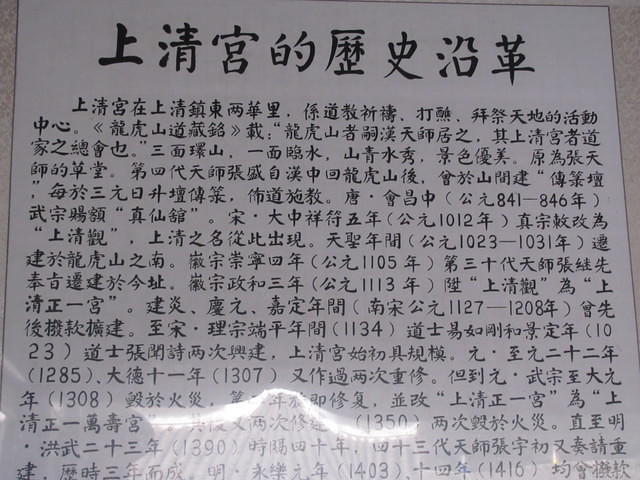 上清宮的歷史沿革
上清宮在上清鎮東两華里，係道教祈禱、打醮、拜祭天地的活動
中心。《龍虎山道藏銘》載：“龍虎山者嗣漢天師居之，其上清宮者道
家之總會也。”三面環山，一面臨水，山青水秀，景色優美。原為張天
師的草堂。第四代天師張盛自漢中回龍虎山後，曾於山間建“傳籙壇
”，每於三元日升壇傳籙，佈道施教。唐·會昌中（公元841—846年）
武宗賜額“真仙舘”。宋·大中祥符五年(公元1012年)真宗敕改為
“上清觀”，上清之名從此出現。天聖年間(公元1023—1031年)遷
建於龍虎山之南。徽宗崇寧四年(公元1105年)第三十代天師張繼先
奉旨遷建於今址。徽宗政和三年(公元1113年)陞“上清觀”為“上
清正一宮”。建炎、慶元、嘉定年間(南宋公元1127—1208年)曾先
後撥款擴建。至宋·理宗端平年間(1134)道士易如剛和景定年(10
23)道士張聞詩两次興建，上清宮始初具規模。元·至元二十二年
(1285)、大德十一年(1307)又作過两次重修。但到元·武宗至大元
年(1308)毀於火災，年即修复，並改“上清正一宮”為“上
清正一萬壽宮”。两次修建(1350)两次毀於火災。直至明
·洪武二十三年(1390)時隔四十年，四十三代天師張宇初又奏請重
建，歷時三年而成。明·永樂元年(1403)、十四年(1416)均會撥款